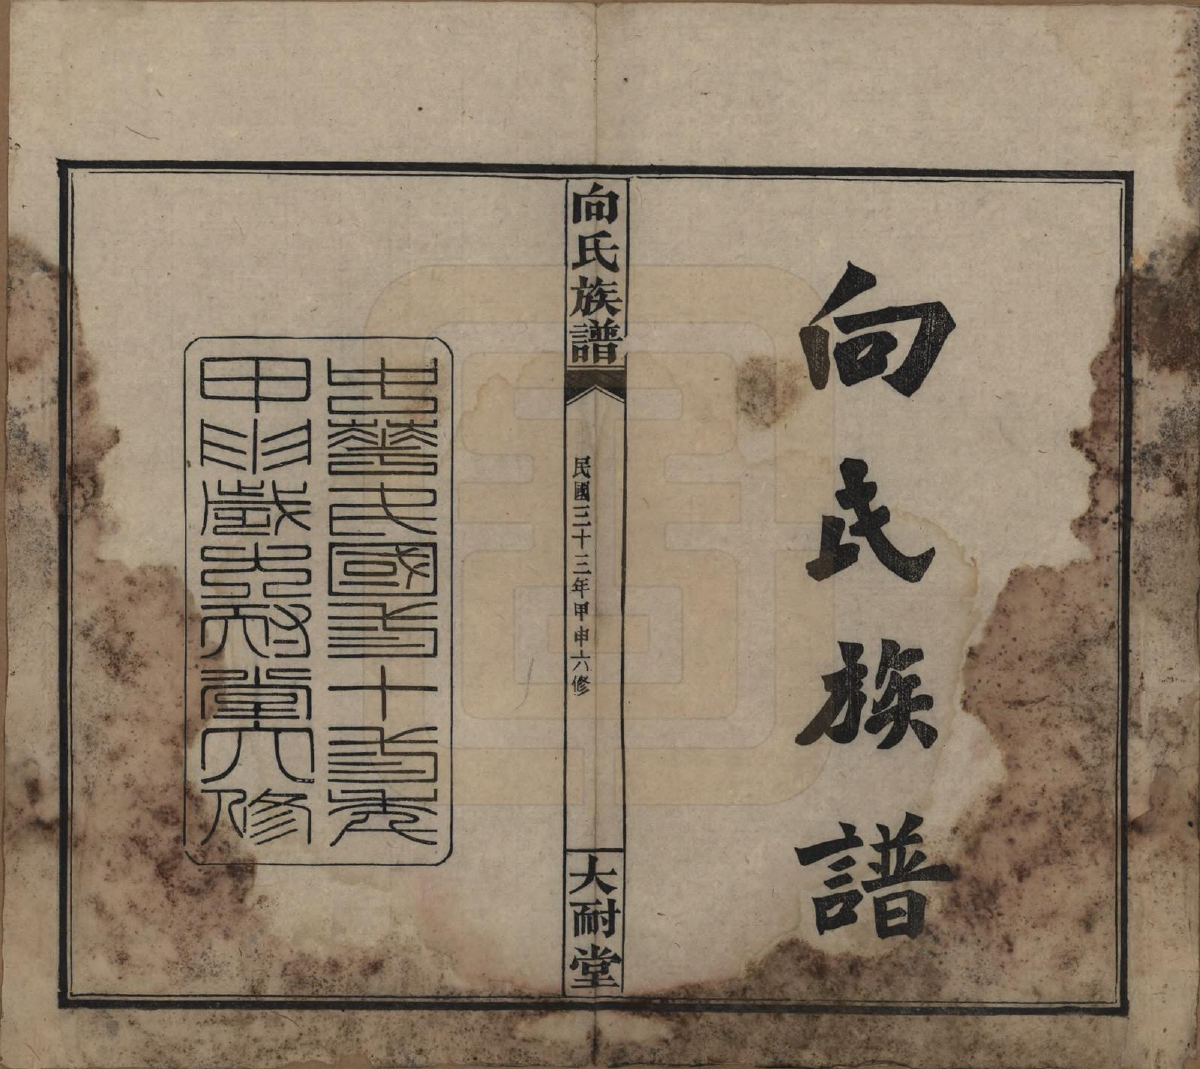 向氏族譜
向氏族譜
民國三十三年甲申六修
大耐堂
中華民國卅十卅年
甲申歲大耐堂六修